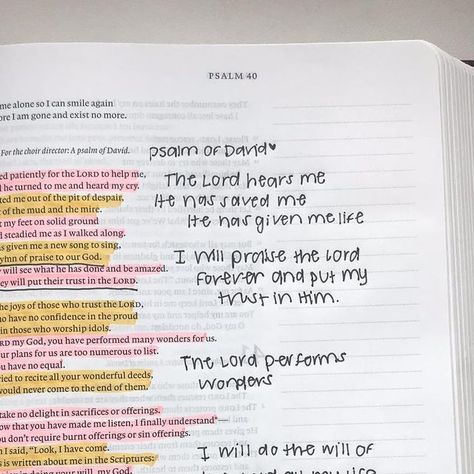 PSALM 40
me alone so I can smile again
ore I am gone and exist no more.
For the choir director: A psalm of David.
psalm of David♥
ed patiently for the LORD to help me,
d he turned to me and heard my cry.
ted me out of the pit of despair,
t of the mud and the mire.
t my feet on solid ground
d steadied me as I walked along.
s given me a new song to sing,
ymn of praise to our God.
y will see what he has done and be amazed.
ey will put their trust in the LORD.
The Lord hears me
He has saved me
He has given me life
I will praise the Lord
forever and put my
trust in Him.
the joys of those who trust the LORD,
o have no confidence in the proud
in those who worship idols.
RD my God, you have performed many wonders for us.
ur plans for us are too numerous to list.
u have no equal.
ried to recite all your wonderful deeds,
ould never come to the end of them.
The Lord performs
wonders
take no delight in sacrifices or offerings.
ow that you have made me listen, I finally understand—
u don't require burnt offerings or sin offerings.
n I said, "Look, I have come.
s is written about me in the Scriptures:
joy in doing your will, my God,
I will do the will of